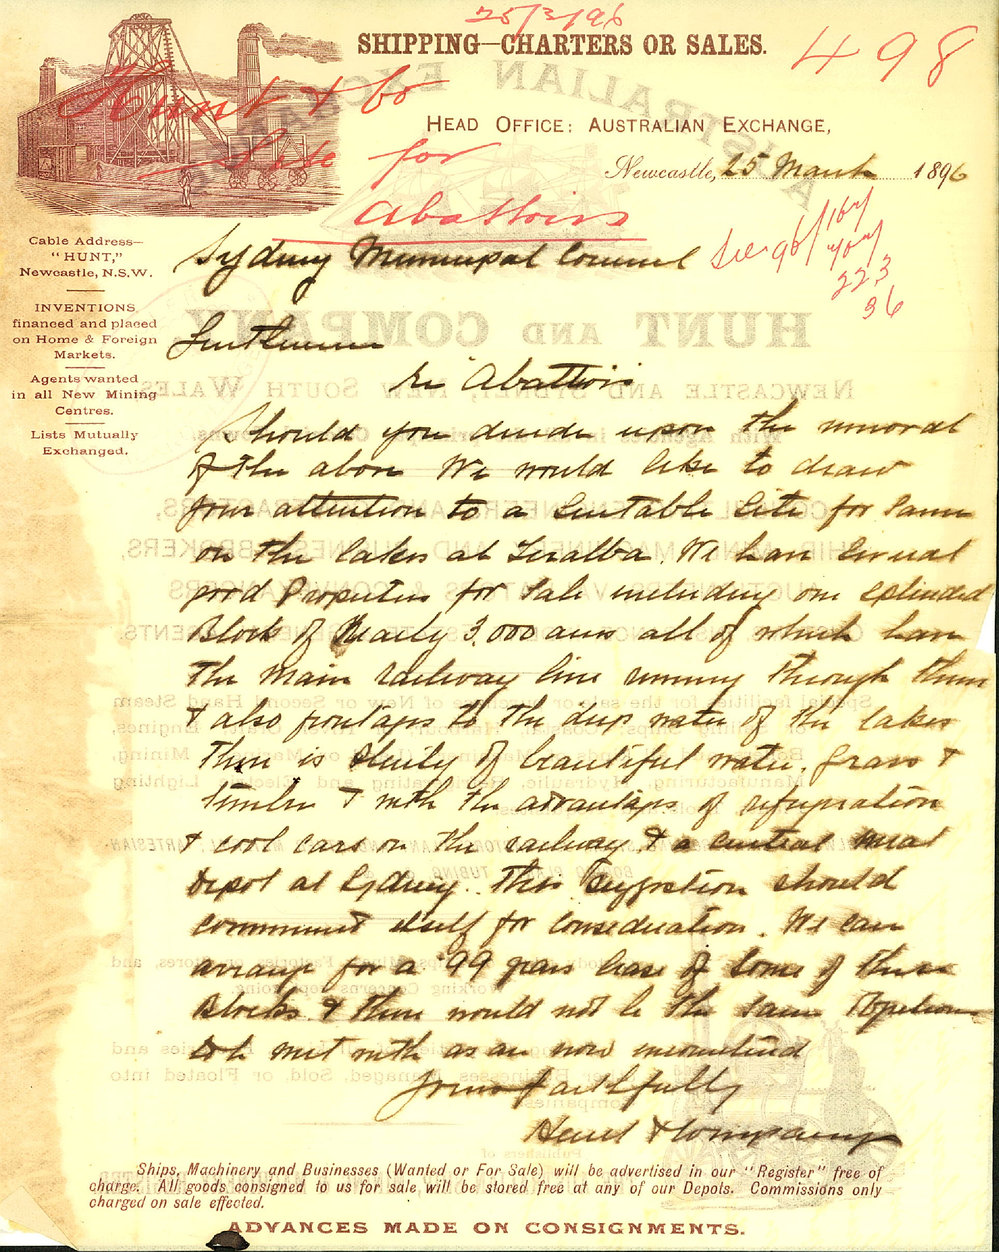 25/3/96
SHIPPING—CHARTERS OR SALES.
498
Hunt & Co
Site for
Abattoirs
HEAD OFFICE: AUSTRALIAN EXCHANGE,
Newcastle, 25 March 1896
See 96/
223
96
Cable Address—
"HUNT,"
Newcastle, N.S.W.
INVENTIONS
financed and placed
on Home & Foreign
Markets.
Agents wanted
in all New Mining
Centres.
Lists Mutually
Exchanged.
Sydney Municipal Council
Gentlemen
re Abattoirs
Should you decide upon the removal
of the above We would like to draw
your attention to a Suitable Site for Same
on the lakes at Teralba. We have several
good Properties for Sale including one splendid
Block of Nearly 3,000 acres all of which have
the main railway line running through them
& also frontages to the deep water of the lakes
There is Plenty of beautiful water, Grass &
timber & with the advantages of refrigeration
& cool cars on the railway & a central meat
Depot at Sydney. This Suggestion should
commend itself for consideration. We can
arrange for a 99 years lease of Some of these
Blocks & there would not be the same Opposition
to be met with as are now
Yours faithfully
Hunt & Company
Ships, Machinery and Businesses (Wanted or For Sale) will be advertised in our "Register" free of
charge. All goods consigned to us for sale will be stored free at any of our Depots. Commissions only
charged on sale effected.
ADVANCES MADE ON CONSIGNMENTS.